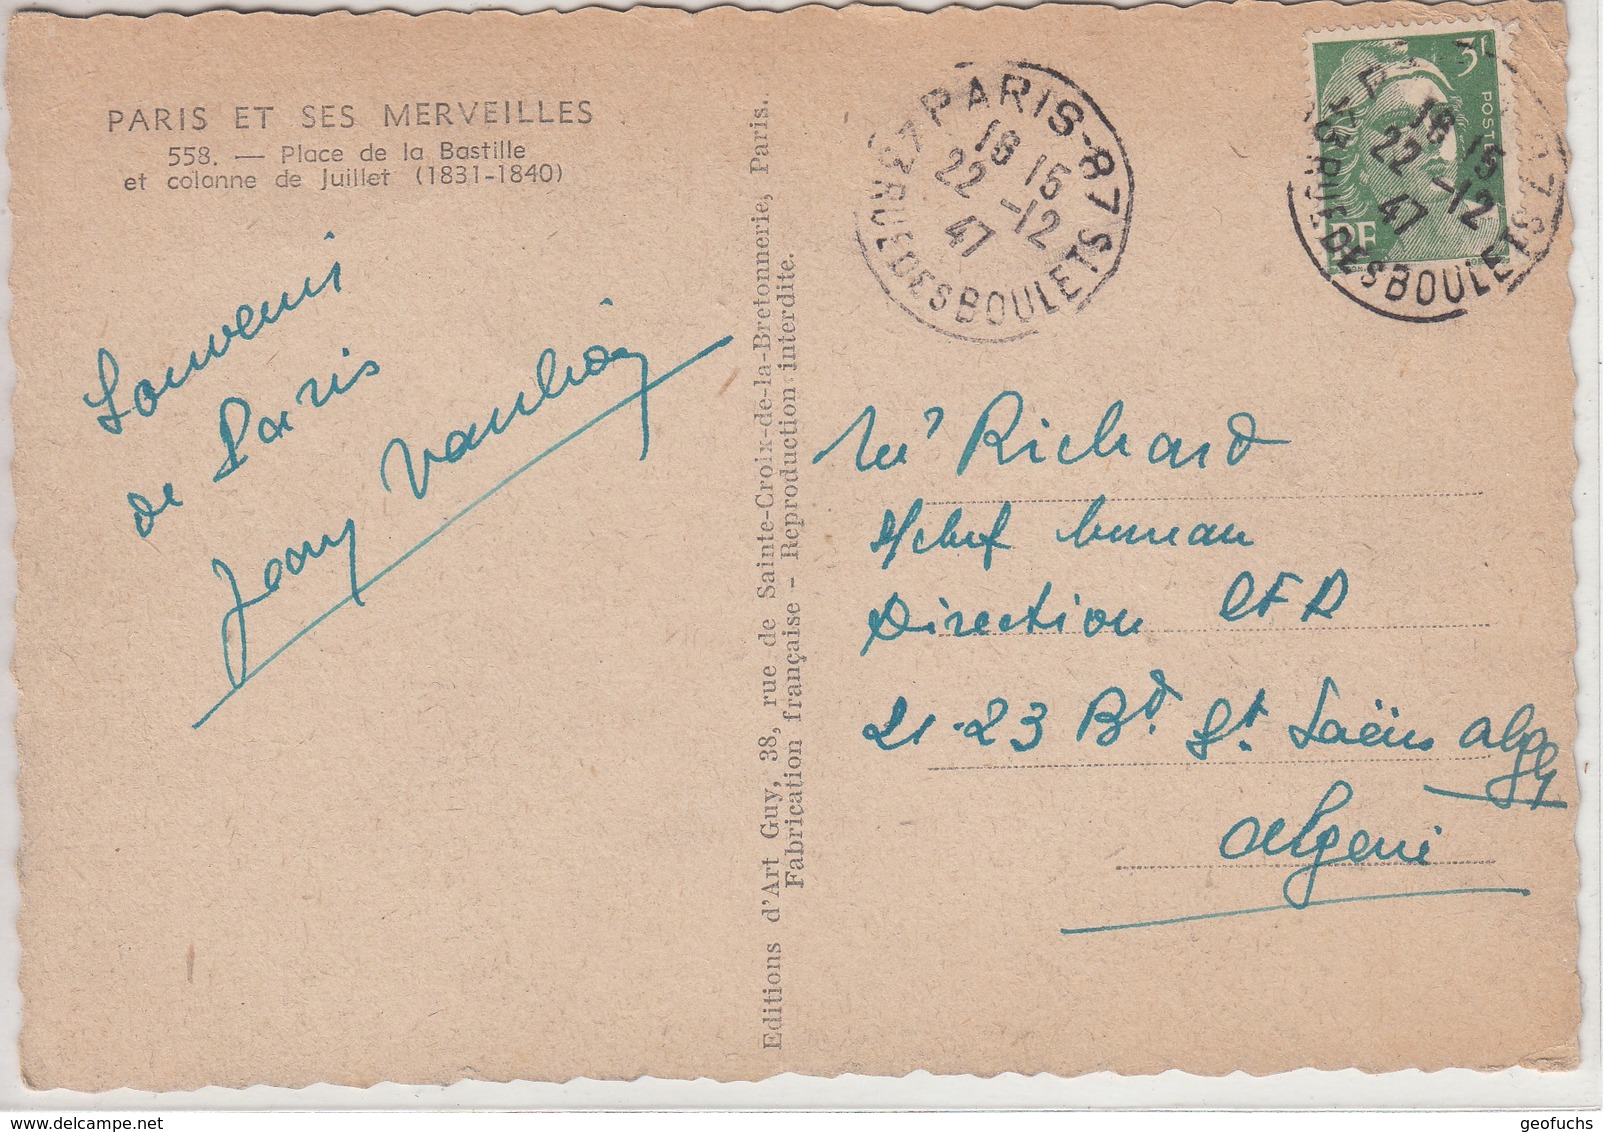 PARIS ET SES MERVEILLES
558. — Place de la Bastille
et colonne de Juillet (1831-1840)
Souvenir
de Paris
Jeany
Editions d'Art Guy, 38, rue de Sainte-Croix-de-la-Bretonnerie, Paris.
Fabrication française - Reproduction interdite.
PARIS-87
18 15
22 -12
47
43 RUE DES BOULETS
3F
POSTES
RF
18 15
22 -12
47
43 RUE DES BOULETS
Mr Richard
S/chef bureau
Direction CFA
21-23 Bd St Saëns Alger
Algérie
geofuchs